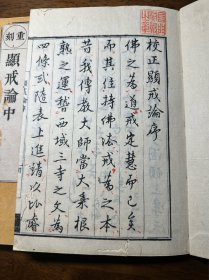 校正顯戒論序
佛之為道戒定慧而已矣
而其住持佛法戒為之本
昔我傳教大師當大乘根
熟之運誓西域三寺之文為
四條式隨表上進請以比睿
重刻
顯戒論中